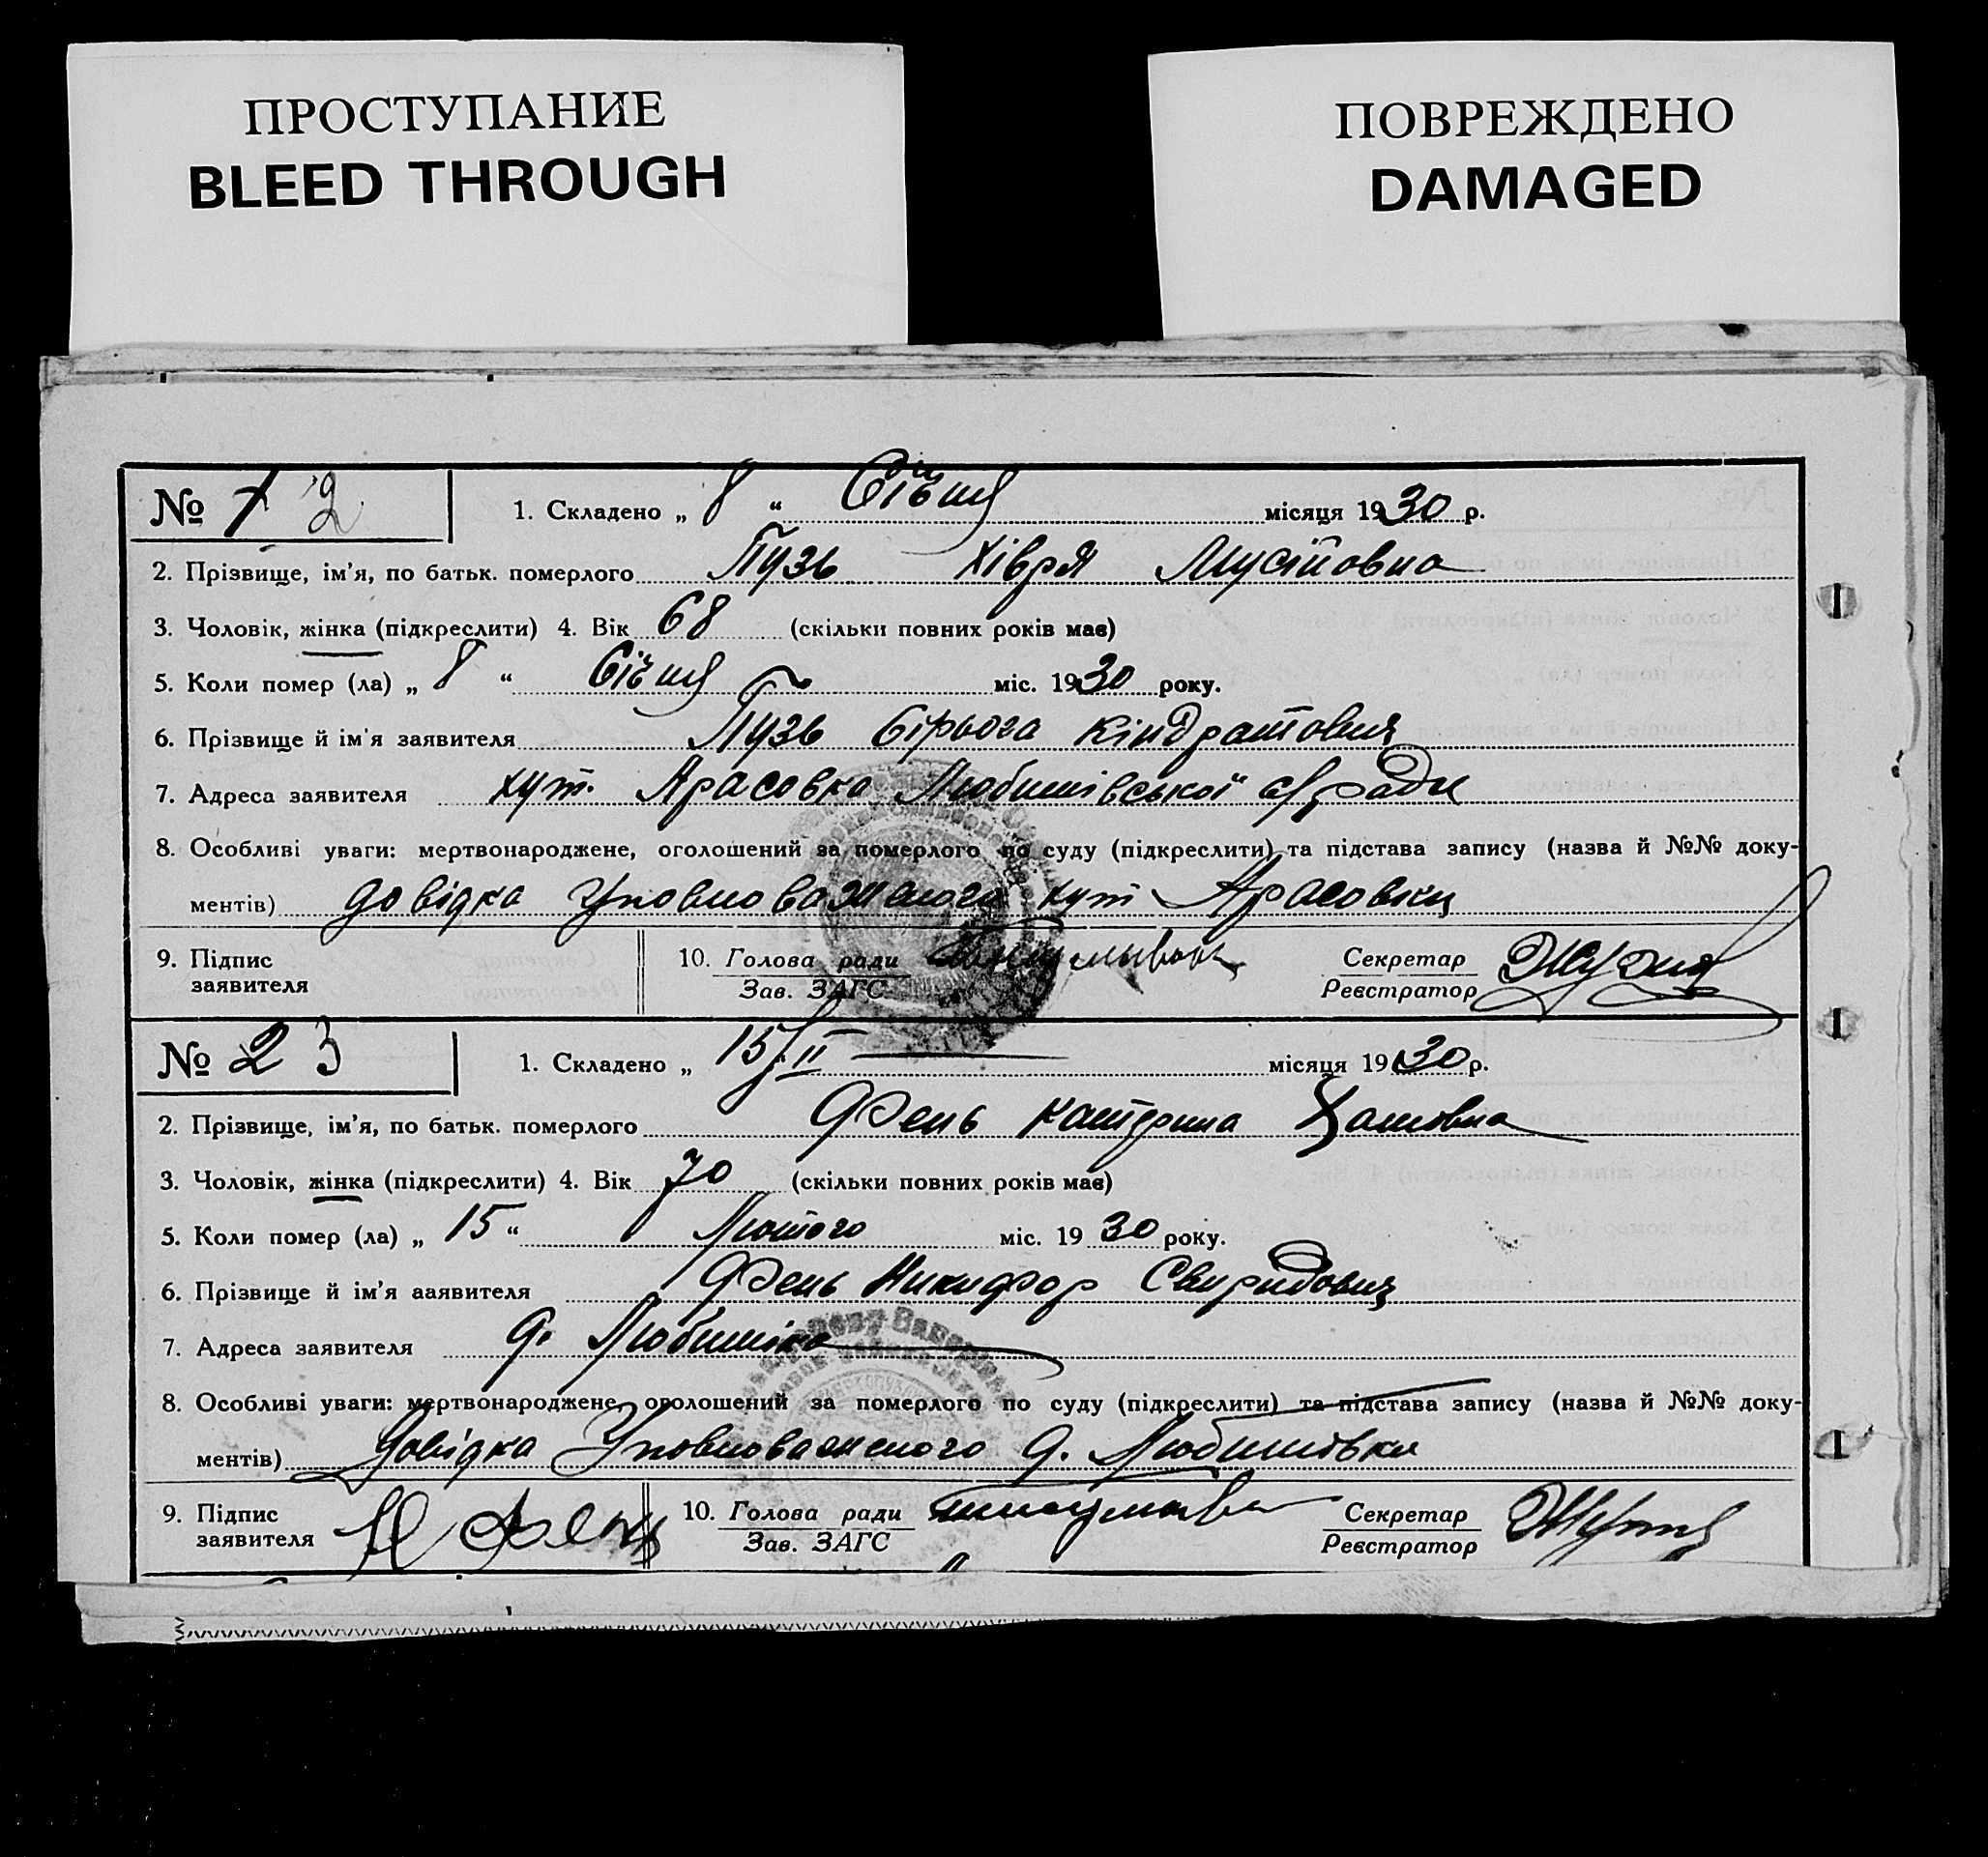 ПРОСТУПАНИЕ
BLEED THROUGH
ПОВРЕЖДЕНО
DAMAGED
№ 1 2
1. Складено „ 8 “ Січня місяця 1930 р.
2. Прізвище, ім'я, по батьк. померлого Пузь Хівря Мусіївна
3. Чоловік, жінка (підкреслити) 4. Вік 68 (скільки повних років має)
5. Коли помер (ла) „ 8 “ Січня міс. 1930 року.
6. Прізвище й ім'я заявителя Пузь Сірьога Кіндратович
7. Адреса заявителя хут. Арасовка Любишівської с/ради
8. Особливі уваги: мертвонароджене, оголошений за померлого по суду (підкреслити) та підстава запису (назва й №№ доку-
ментів) довідка Уповноважаного хут Арасовки
9. Підпис
заявителя
10. Голова ради
Зав. ЗАГС
Секретар
Реєстратор
№ 2 3
1. Складено „ 15/II місяця 1930 р.
2. Прізвище, ім'я, по батьк. померлого Фень Катерина
3. Чоловік, жінка (підкреслити) 4. Вік 70 (скільки повних років має)
5. Коли помер (ла) „ 15 “ Лютого міс. 1930 року.
6. Прізвище й ім'я ааявителя Фень Никифор Свиридович
7. Адреса заявителя д.
8. Особливі уваги: мертвонароджене, оголошений за померлого по суду (підкреслити) та підстава запису (назва й №№ доку-
ментів) Довідка Уповноваженого д. Любишівки
9. Підпис
заявителя Н Фень
10. Голова ради
Зав. ЗАГС
Секретар
Реєстратор